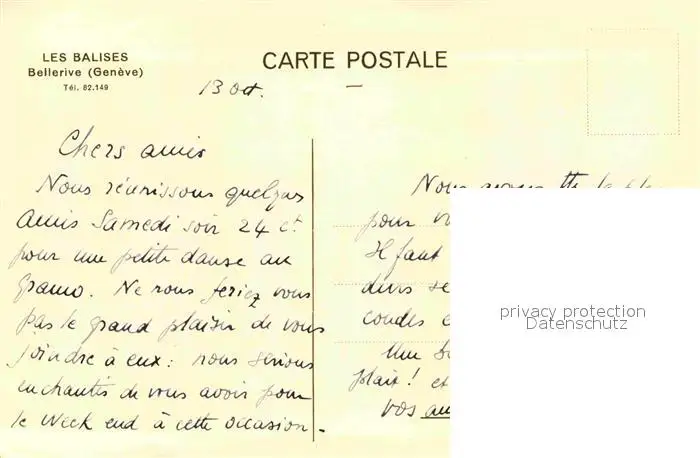 LES BALISES
Bellerive (Genève)
Tél. 82.149
CARTE POSTALE
13 Oct.
Chers amis
Nous réunissons quelques
amis Samedi soir 24 ct
pour une petite danse au
gramo. Ne nous feriez vous
pas le grand plaisir de vous
joindre à eux : nous serions
enchantés de vous avoir pour
le week end à cette occasion.
Nous avons
pour
Il faut
coudes
plait ! et
vos
privacy protection
Datenschutz